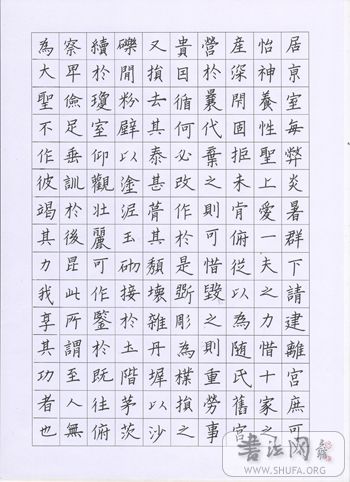 居京室每弊炎暑群下請建離宮庶可
怡神養性聖上愛一夫之力惜十家之
産深閇固拒未肯俯從以為随氏舊宮
營於曩代棄之則可惜毀之則重勞事
貴因循何必改作於是斲彫為樸損之
又損去其泰甚葺其頹壞雜丹墀以沙
礫閒粉壁以塗泥玉砌接於土階茅茨
續於瓊室仰觀壯麗可作鑒於既往俯
察卑儉足垂訓於後昆此所謂至人無
為大聖不作彼竭其力我享其功者也
書法网
WWW.SHUFA.ORG